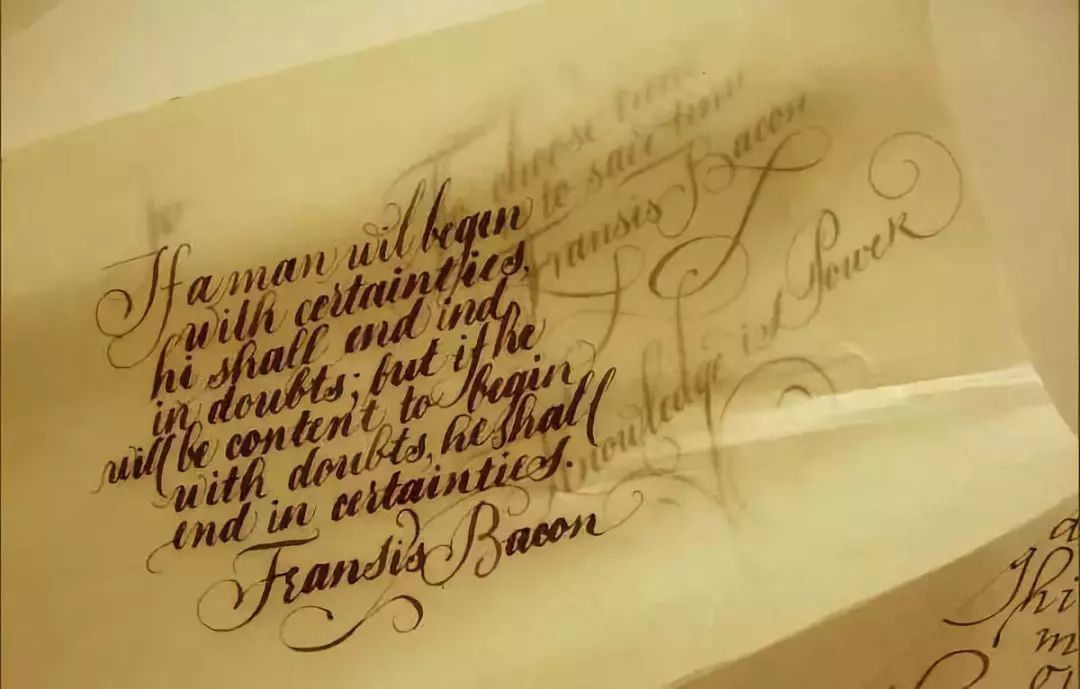 If a man wil begin
with certainties,
hi shall end ind
in doubts; but if he
will be content to begin
with doubts, he shall
end in certainties.
Fransis Bacon
choose time
to save time
Fransis Bacon
Knowledge ist Power
Thi
m